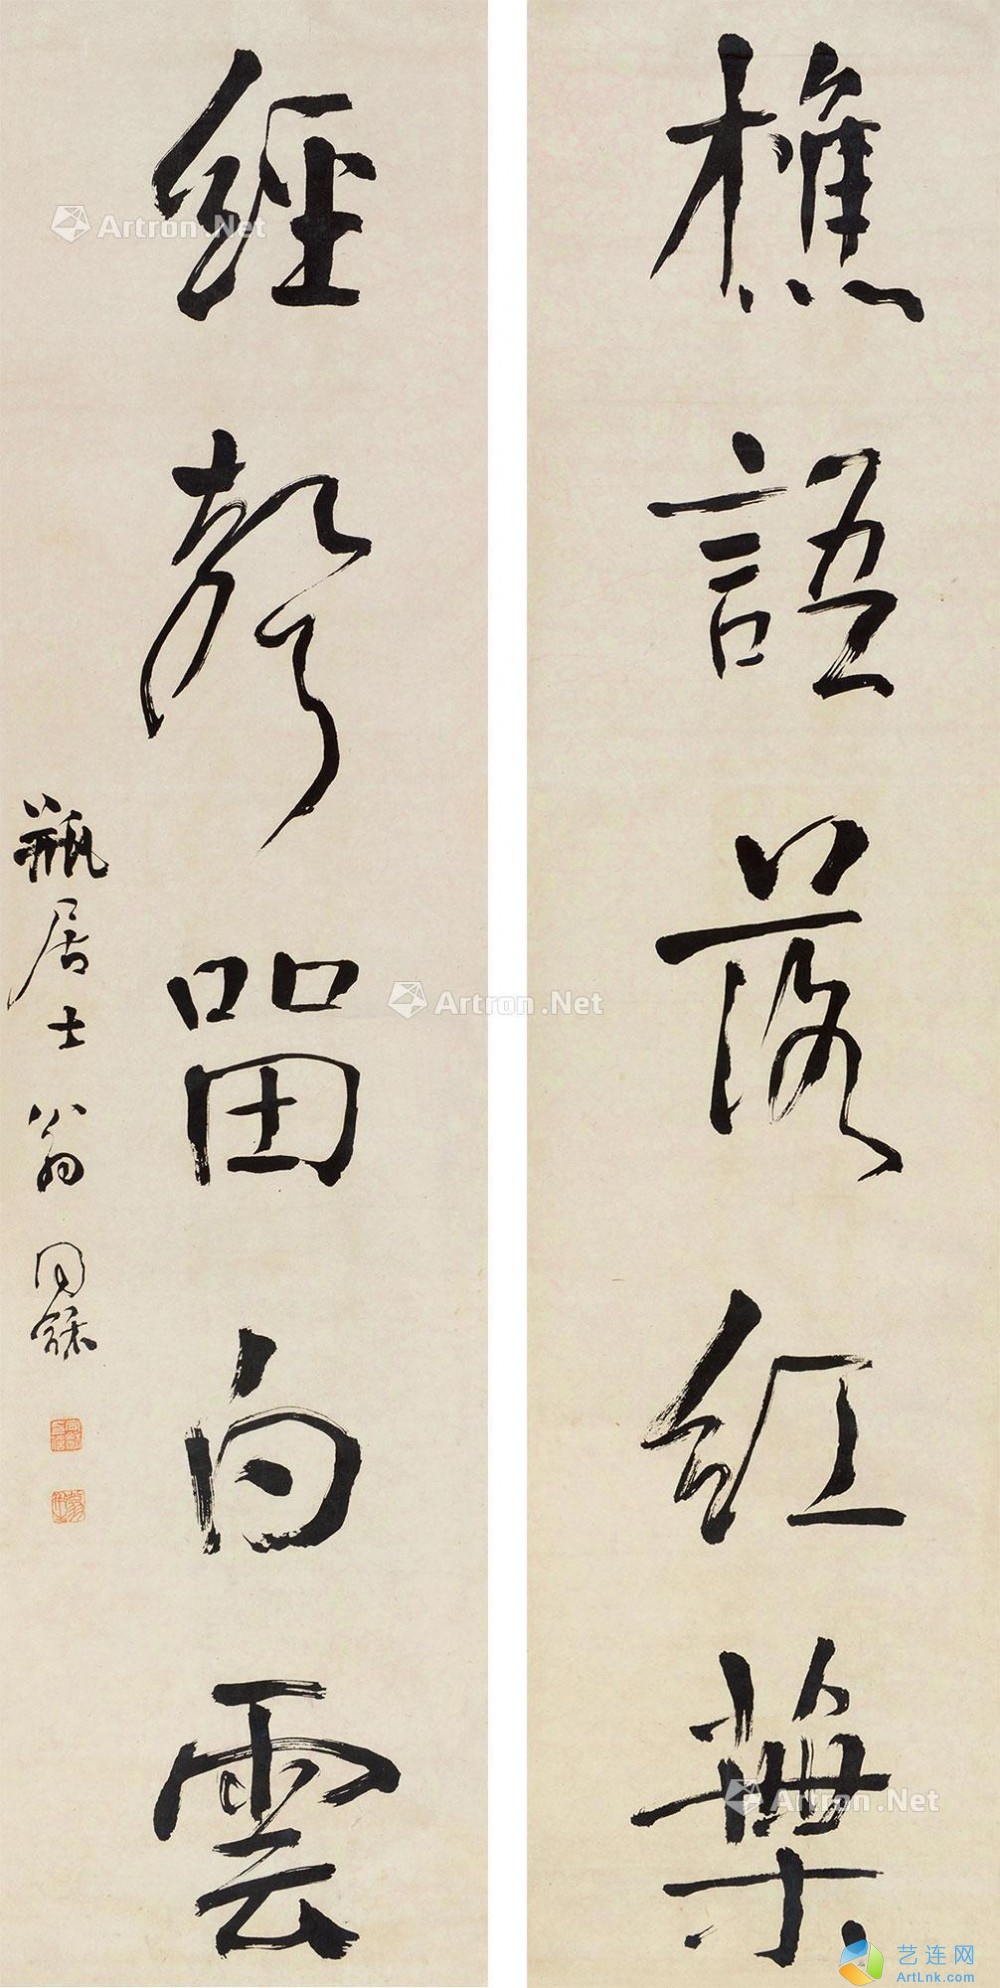 樵語落紅葉
經聲留白雲
瓶居士翁同龢
Artron.Net
Artron.Net
Artron.Net
艺连网
ArtLnk.com